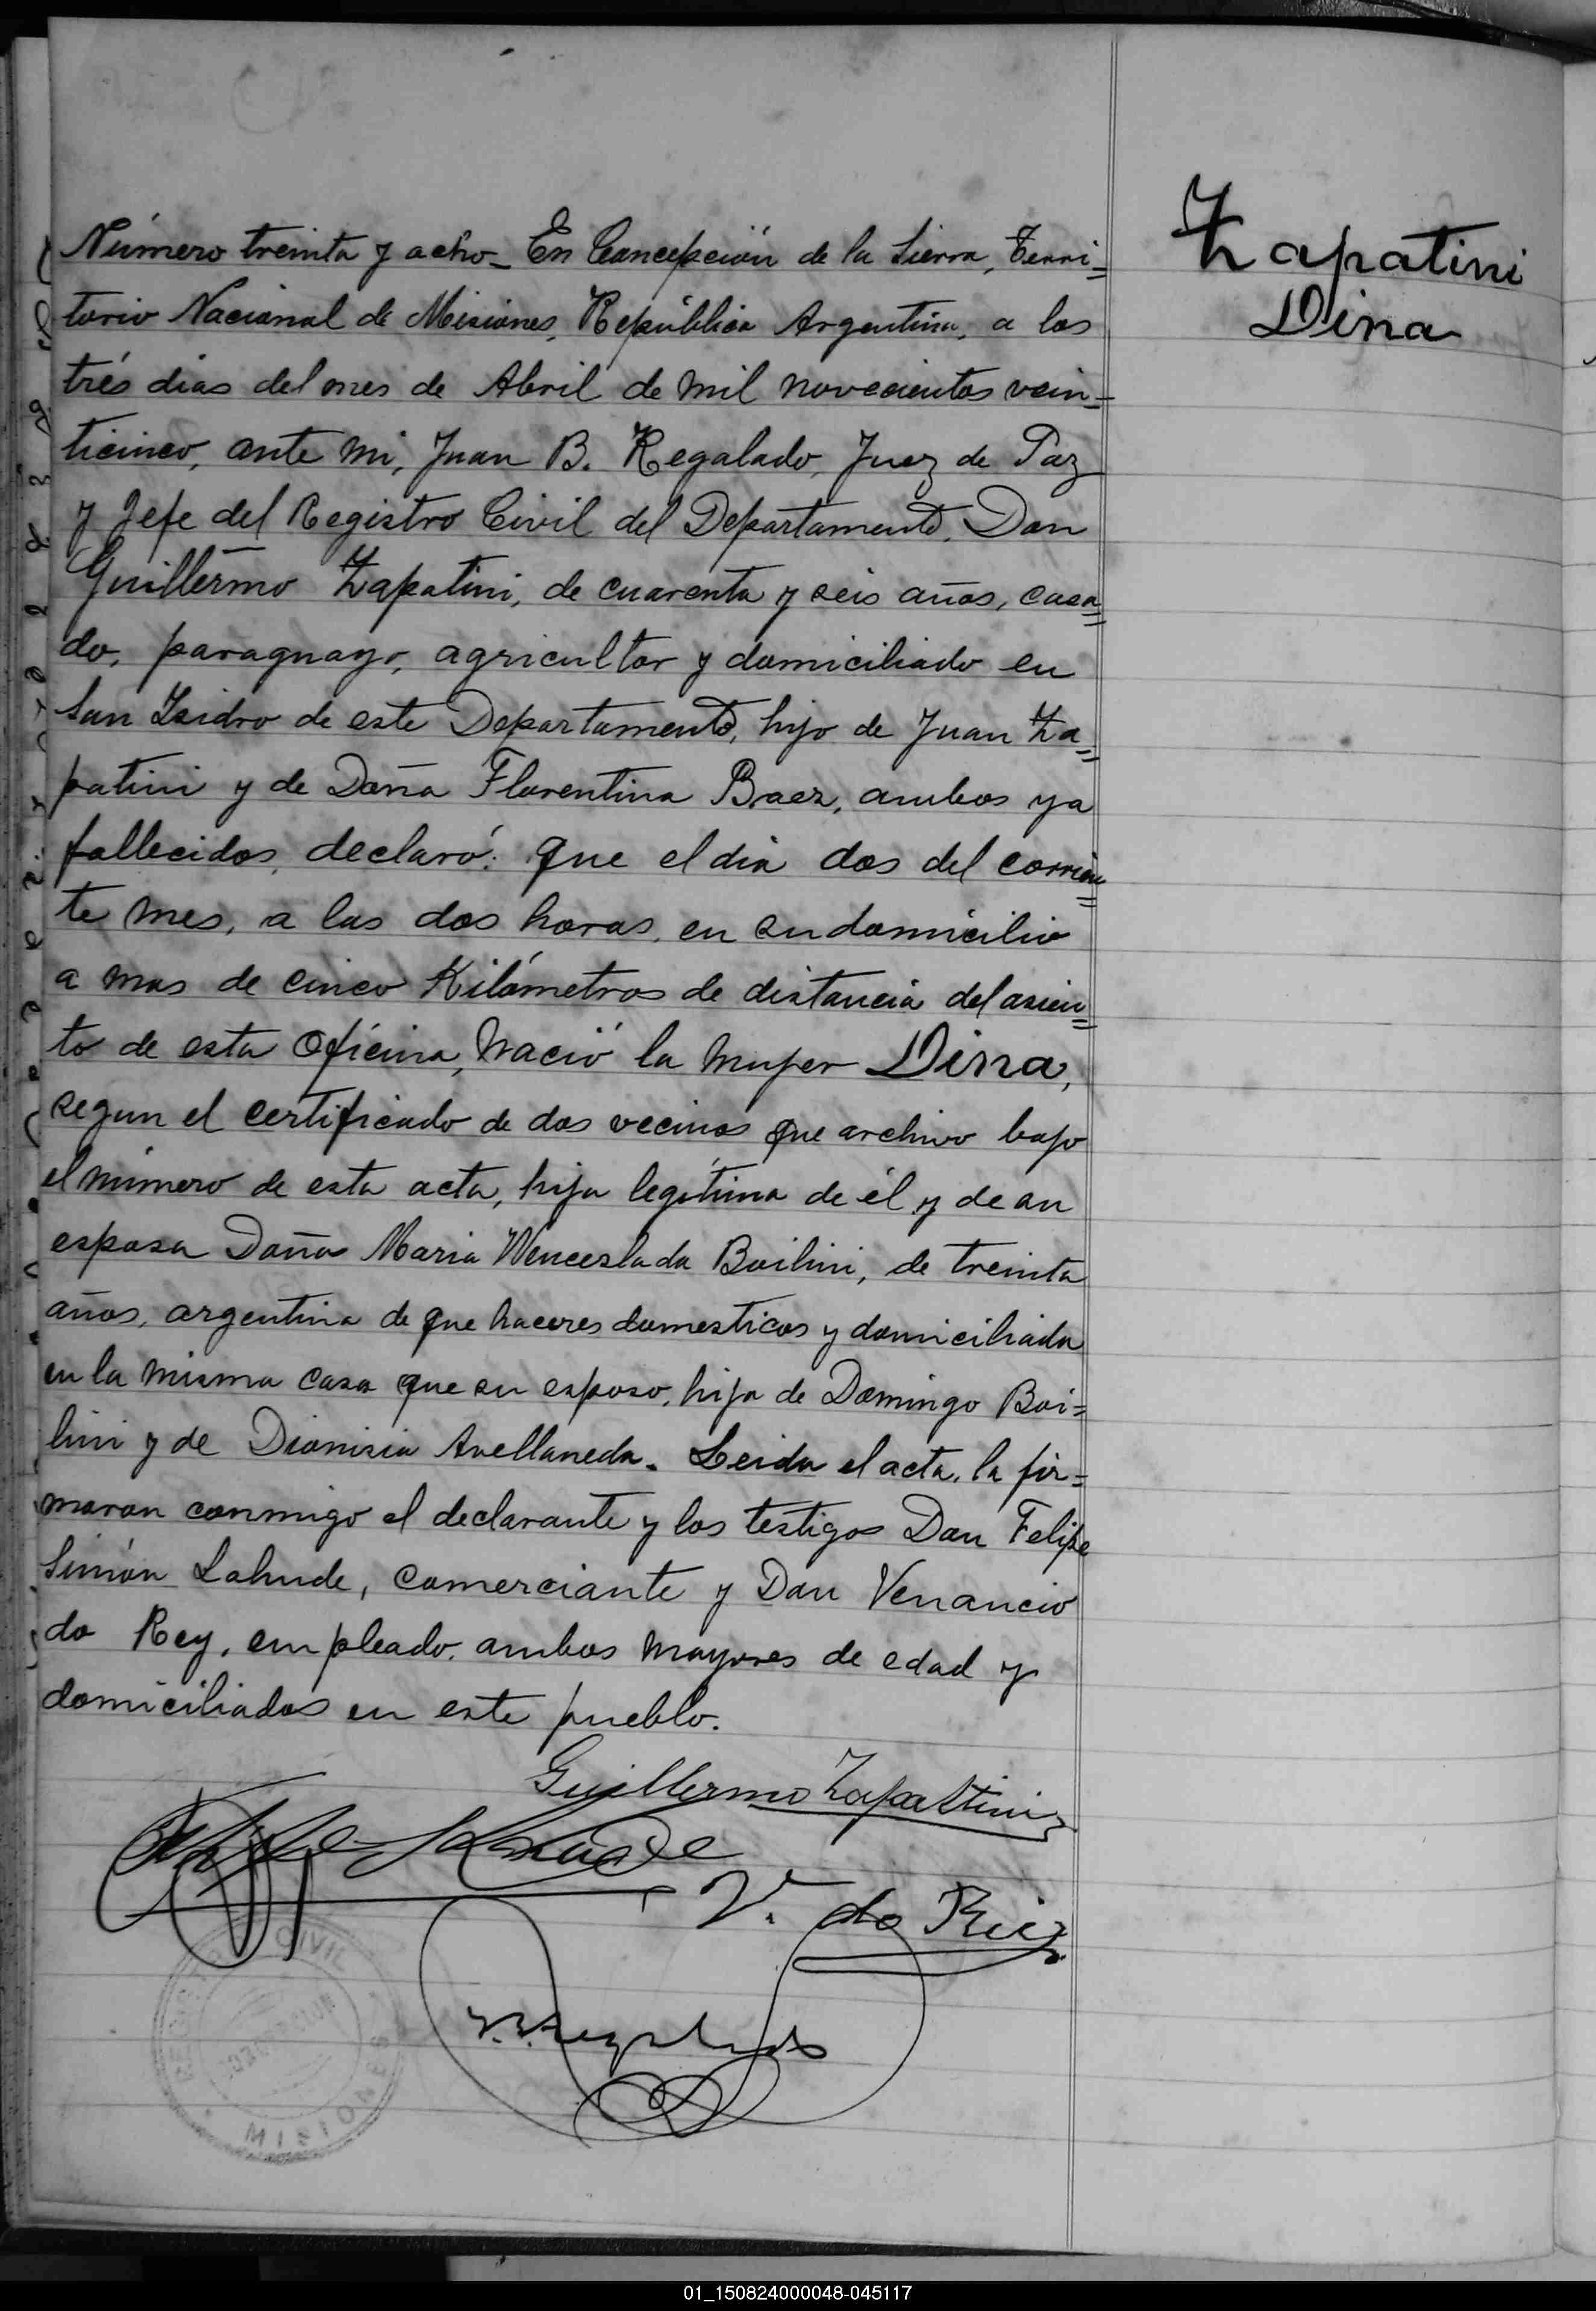 Zapatini
Dina
Número treinta y ocho_ En Concepción de la Sierra, Terri=
torio Nacional de Misiones, República Argentina, a los
trés dias del mes de Abril de mil novecientos vein=
ticinco, ante mi, Juan B. Regalado, Juez de Paz
y Jefe del Registro Civil del Departamento, Don
Guillermo Zapatini, de cuarenta y seis años, casa=
do, paraguayo, agricultor y domiciliado en
San Isidro de este Departamento, hijo de Juan Za=
patini y de Doña Florentina Baez, ambos ya
fallecidos, declaró: que el dia dos del corrien=
te mes, a las dos horas, en su domicilio
a mas de cinco Kilómetros de distancia del asien=
to de esta Oficina, nació la mujer Dina,
segun el certificado de dos vecinos que archivo bajo
el número de esta acta, hija legítima de él y de su
esposa Doña Maria Wenceslada Boilini, de treinta
años, argentina de que haceres domesticos y domiciliada
en la misma casa que su esposo, hija de Domingo Boi=
lini y de Dionisia Avellaneda. Leida el acta, la fir=
maron conmigo el declarante y los testigos Don Felipe
Simón Lahude, comerciante y Don Venancio
do Rey, empleado, ambos mayores de edad y
domiciliados en este pueblo.
Guillermo Zapattini
Felipe S Lahude
V. do Rei
J. B. Regalado
REGISTRO CIVIL
MISIONES
01_150824000048-045117